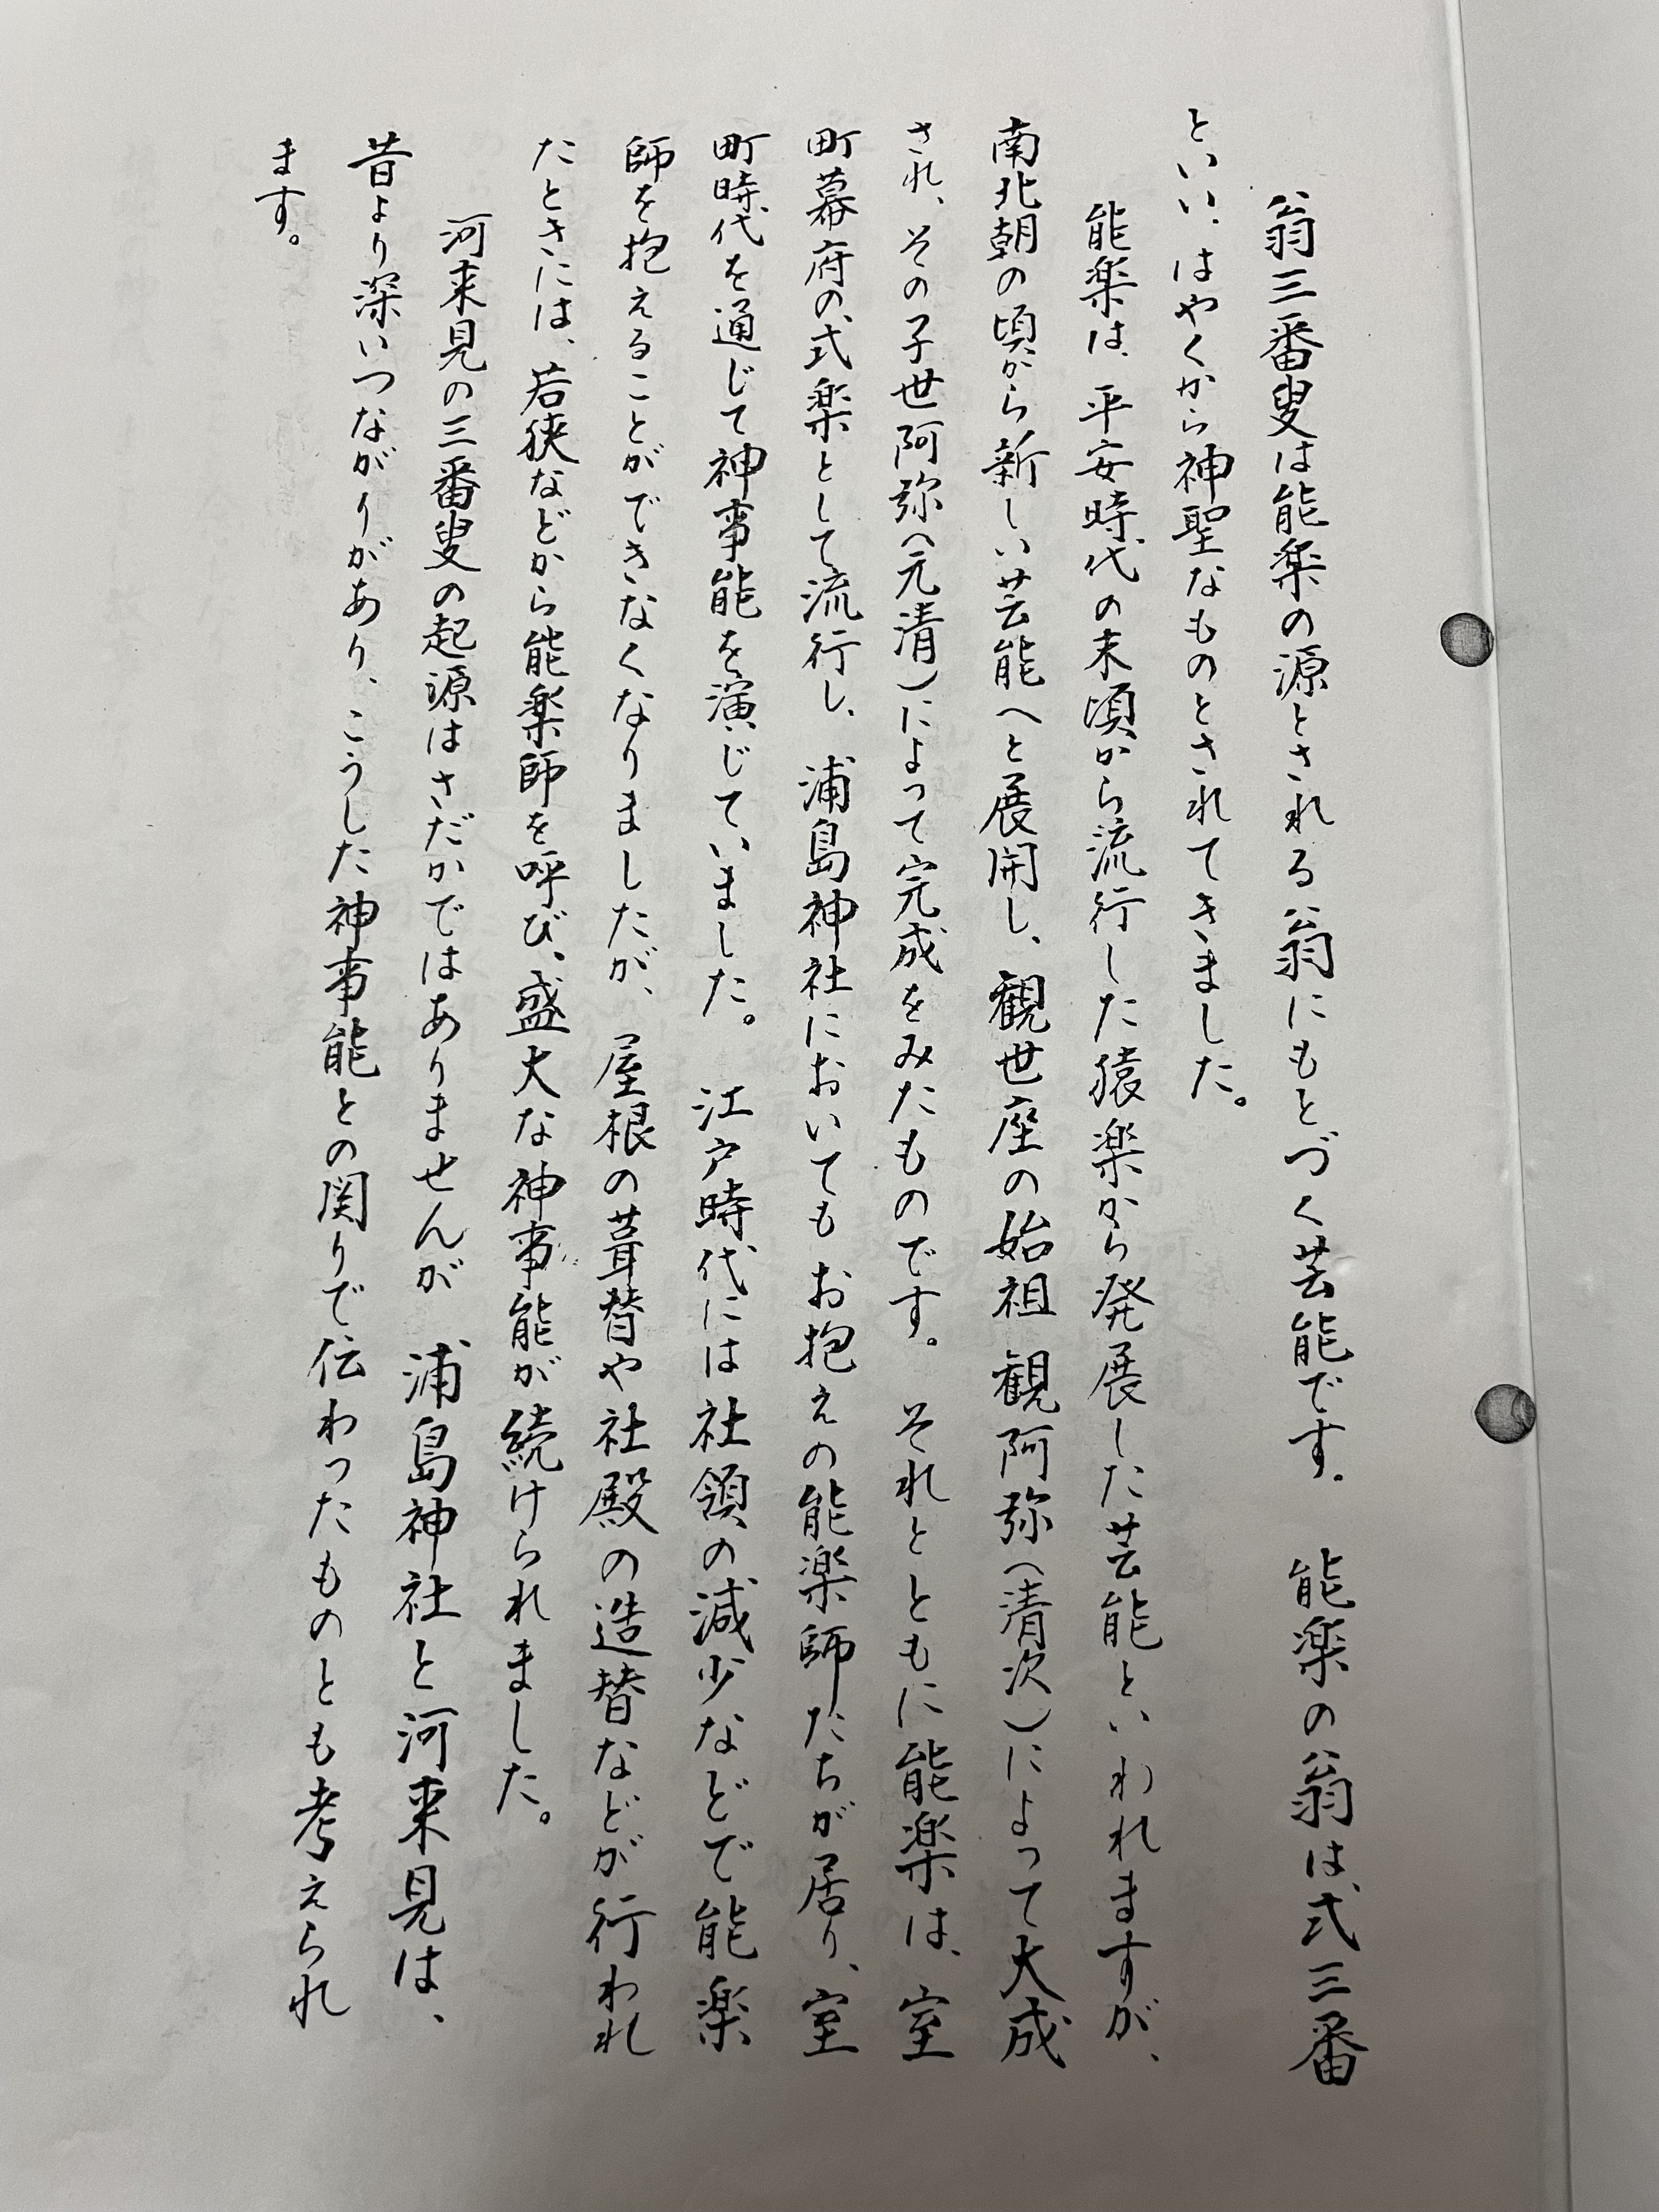 翁三番叟は能楽の源とされる翁にもとづく芸能です。 能楽の翁は、式三番
といい、はやくから神聖なものとされてきました。
能楽は、平安時代の末頃から流行した猿楽から発展した芸能といわれますが、
南北朝の頃から新しい芸能へと展開し、観世座の始祖 観阿弥(清次)によって大成
され、その子世阿弥(元清)によって完成をみたものです。それとともに能楽は、室
町幕府の式楽として流行し、浦島神社においてもお抱えの能楽師たちが居り、室
町時代を通じて神事能を演じていました。江戸時代には社領の減少などで能楽
師を抱えることができなくなりましたが、屋根の葺替や社殿の造替などが行われ
たときには、若狭などから能楽師を呼び、盛大な神事能が続けられました。
河来見の三番叟の起源はさだかではありませんが 浦島神社と河来見は、
昔より深いつながりがあり、こうした神事能との関りで伝わったものとも考えられ
ます。